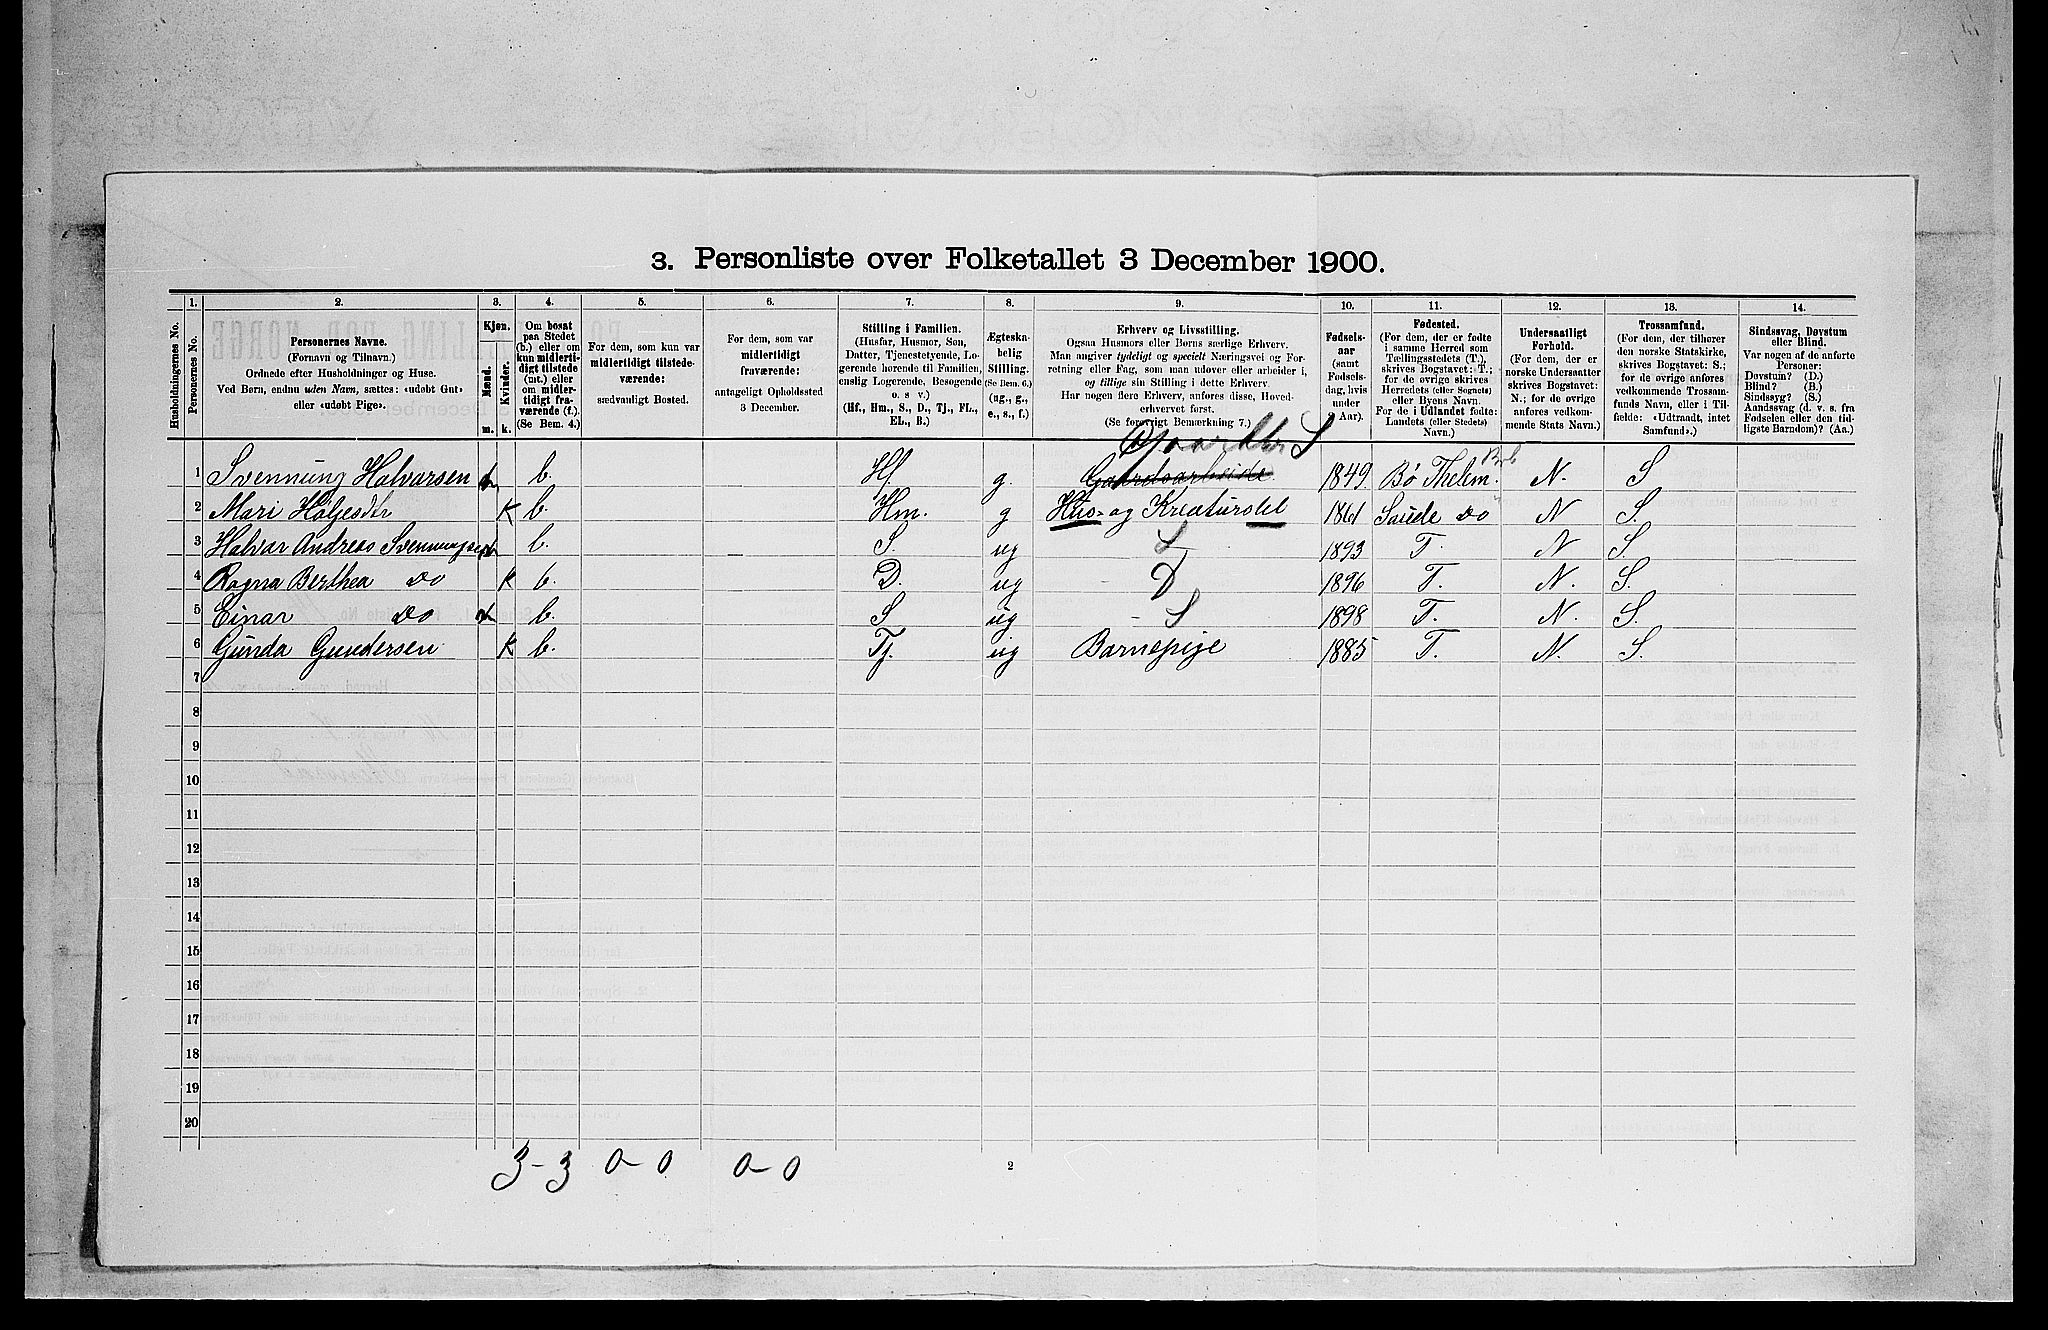 3. Personliste over Folketallet 3 December 1900.
1. 2. 3. 4. 5. 6. 7. 8. 9. 10. 11. 12. 13. 14.
Husholdningernes No.
Personernes No.
Personernes Navne.
(Fornavn og Tilnavn.)
Ordnede efter Husholdninger og Huse.
Ved Børn, endnu uden Navn, sættes: «udøbt Gut»
eller «udøbt Pige».
Kjøn.
Mænd. m.
Kvinder. k.
Om bosat
paa Stedet
(b.) eller om
kun midlerti-
digt tilstede
(mt.) eller
om midler-
tidigt fra-
værende (f.).
(Se Bem. 4.)
For dem, som kun var
midlertidigt tilstede-
værende:
sædvanligt Bosted.
For dem, som var
midlertidigt
fraværende:
antageligt Opholdssted
3 December.
Stilling i Familien.
(Husfar, Husmor, Søn,
Datter, Tjenestetyende, Lo-
gerende hørende til Familien,
enslig Logerende, Besøgende
o. s v.)
(Hf., Hm., S., D., Tj., FL.,
EL., B.)
Ægteska-
belig
Stilling.
(Se Bem. 6.)
(ug., g.,
e., s., f.)
Erhverv og Livsstilling.
Ogsaa Husmors eller Børns særlige Erhverv.
Man angiver tydeligt og specielt Næringsvei og For-
retning eller Fag, som man udøver eller arbeider i,
og tillige sin Stilling i dette Erhverv.
Har nogen flere Erhverv, anføres disse, Hoved-
erhvervet først.
(Se forøvrigt Bemærkning 7.)
Fødsels-
aar
(samt
Fødsels-
dag, hvis
under
2 Aar).
Fødested.
(For dem, der er fødte
i samme Herred som
Tællingsstedets (T.),
skrives Bogstavet: T.;
for de øvrige skrives
Herredets (eller Sognets)
eller Byens Navn.
For de i Udlandet fødte:
Landets (eller Stedets)
Navn.)
Undersaatligt
Forhold.
(For dem, der er
norske Undersaatter
skrives Bogstavet:
N.; for de øvrige
anføres vedkom-
mende Stats Navn.)
Trossamfund.
(For dem, der tilhører
den norske Statskirke,
skrives Bogstavet: S.;
for de øvrige anføres
vedkommende Trossam-
funds Navn, eller i Til-
fælde: «Udtraadt, intet
Samfund».)
Sindssvag, Døvstum
eller Blind.
Var nogen af de anførte
Personer:
Døvstum? (D.)
Blind? (B.)
Sindssyg? (S.)
Aandssvag (d. v. s. fra
Fødselen eller den tid-
ligste Barndom)? (Aa.)
1 Svennung Halvarsen b. Hf. g. Gaardsarbeide 1849 Bø Thelem. N. S
2 Mari Holjesdtr K b. Hm. g Hus- og Kreaturstel 1861 Saude Do N S.
3 Halvar Andreas Svennungsen b. S. ug S 1893 T. N S.
4 Ragna Berthea Do K b. D. ug D 1896 T. N. S.
5 Einar Do b. S ug S 1898 T. N. S.
6 Gunda Gundersen K b. Tj. ug Barnepige 1885 T. N. S.
7
8
9
10
11
12
13
14
15
16
17
18
19
20
3-3 0-0 0-0
2